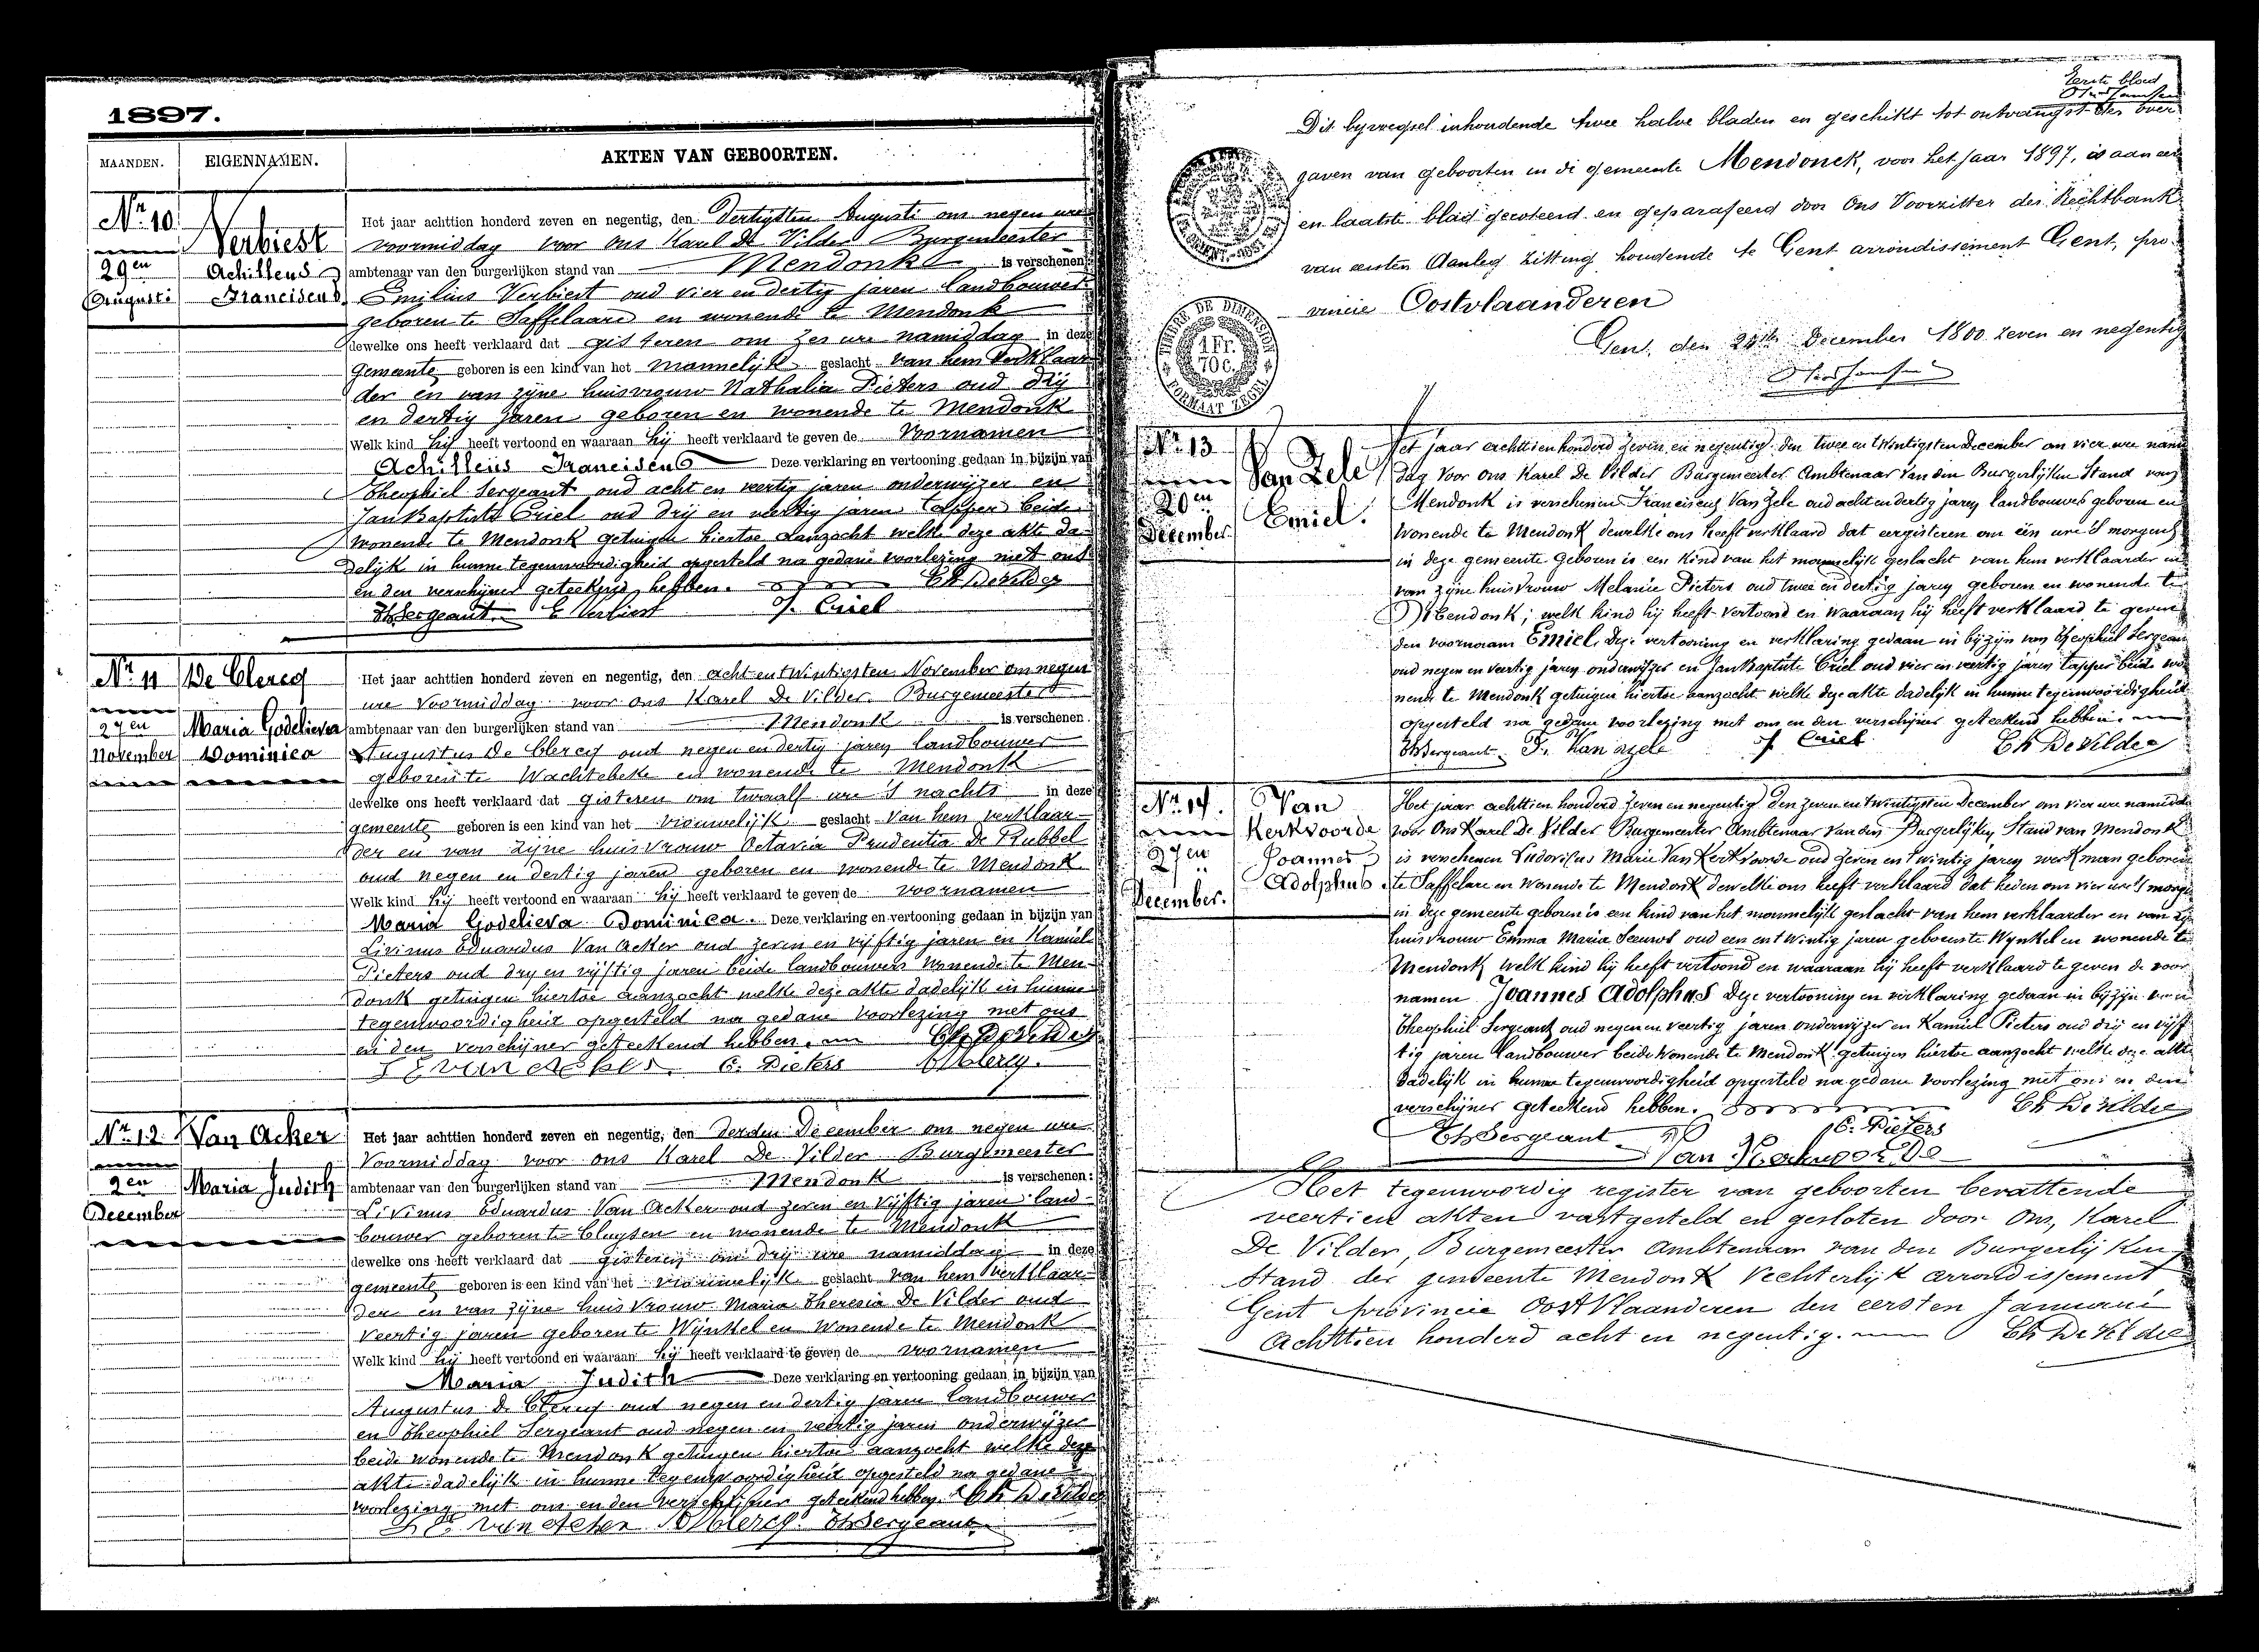 1897.
MAANDEN. EIGENNAMEN. AKTEN VAN GEBOORTEN.
Nr. 10.
Verbiest
29en Achilleus
Augusti Franciscus
Het jaar achttien honderd zeven en negentig, den dertigsten Augusti om negen ure
voormiddag voor ons Karel De Vilder Burgemeester
ambtenaar van den burgerlijken stand van Mendonk is verschenen:
Emilius Verbiest oud vier en dertig jaren landbouwer
geboren te Saffelaare en wonende te Mendonk
dewelke ons heeft verklaard dat gisteren om zes ure namiddag in deze
gemeente geboren is een kind van het mannelijk geslacht van hem verklaar
der en van zijne huisvrouw Nathalia Pieters oud drij
en dertig jaren geboren en wonende te Mendonk
Welk kind hij heeft vertoond en waaraan hij heeft verklaard te geven de voornamen
Achilleus Franciscus Deze verklaring en vertooning gedaan in bijzijn van
Theophiel Sergeant oud acht en veertig jaren onderwijzer en
Jan Baptiste Criel oud drij en veertig jaren tapper beide
wonende te Mendonk getuigen hiertoe aanzocht welke deze akte da-
delijk in hunne tegenwoordigheid opgesteld na gedane voorlezing met ons
en den verschijner geteekend hebben. Ch De Vilder
Th Sergeant E Verbiest J. Criel
Nr. 11 De Clercq
27en Maria Godelieva
November Dominica
Het jaar achttien honderd zeven en negentig, den acht en twintigsten November om negen
ure voormiddag voor ons Karel De Vilder Burgemeester
ambtenaar van den burgerlijken stand van Mendonk is verschenen
Augustus De Clercq oud negen en dertig jaren landbouwer
geboren te Wachtebeke en wonende te Mendonk
dewelke ons heeft verklaard dat gisteren om twaalf ure 's nachts in deze
gemeente geboren is een kind van het vrouwelijk geslacht van hem verklaar-
der en van zijne huisvrouw Octavia Prudentia De Rubbel
oud negen en dertig jaren geboren en wonende te Mendonk
Welk kind hij heeft vertoond en waaraan hij heeft verklaard te geven de voornamen
Maria Godelieva Dominica. Deze verklaring en vertooning gedaan in bijzijn van
Livinus Eduardus Van Acker oud zeven en vijftig jaren en Kamiel
Pieters oud drij en vijftig jaren beide landbouwers wonende te Men-
donk getuigen hiertoe aanzocht welke deze akte dadelijk in hunne
tegenwoordigheid opgesteld na gedane voorlezing met ons
en den verschijner geteekend hebben. Ch De Vilder
L E van acker C. Pieters A De Clercq.
Nr. 12. Van Acker
2en Maria Judith
December
Het jaar achttien honderd zeven en negentig, den derden December om negen ure
voormiddag voor ons Karel De Vilder Burgemeester
ambtenaar van den burgerlijken stand van Mendonk is verschenen:
Livinus Eduardus Van Acker oud zeven en vijftig jaren land-
bouwer geboren te Cluysen en wonende te Mendonk
dewelke ons heeft verklaard dat gisteren om drij ure namiddag in deze
gemeente geboren is een kind van het vrouwelijk geslacht van hem verklaar-
der en van zijne huisvrouw Maria Theresia De Vilder oud
veertig jaren geboren te Wynkel en wonende te Mendonk
Welk kind hij heeft vertoond en waaraan hij heeft verklaard te geven de voornamen
Maria Judith Deze verklaring en vertooning gedaan in bijzijn van
Augustus De Clercq oud negen en dertig jaren landbouwer
en Theophiel Sergeant oud negen en veertig jaren onderwijzer
beide wonende te Mendonk getuigen hiertoe aanzocht welke deze
akte dadelijk in hunne tegenwoordigheid opgesteld na gedane
voorlezing met ons en den verschijner geteekend hebben. Ch De Vilder
van acker A De Clercq Th Sergeant
Eerste blad
Dit bijvoegsel inhoudende twee halve bladen en geschikt tot ontvangst der over
gaven van geboorten in de gemeente Mendonck, voor het jaar 1897, is aan een
en laatste blad gecoteerd en geparafeerd door Ons Voorzitter der Rechtbank
van eersten Aanleg zitting houdende te Gent arrondissement Gent, pro-
vincie Oostvlaanderen
Gent, den 24en December 1800 zeven en negentig
TIMBRE DE DIMENSION
1 FR.
70 C.
FORMAAT ZEGEL
Nr. 13
Van Zele
20en Emiel.
December
Het jaar achttien honderd zeven en negentig den twee en twintigsten December om vier ure namid
dag voor ons Karel De Vilder Burgemeester Ambtenaar van den Burgerlijken Stand van
Mendonk is verschenen Franciscus Van Zele oud acht en dertig jaren landbouwer geboren en
wonende te Mendonk dewelke ons heeft verklaard dat eergisteren om één ure 's morgens
in deze gemeente geboren is een kind van het mannelijk geslacht van hem verklaarder en
van zijne huisvrouw Melanie Pieters oud twee en dertig jaren geboren en wonende te
Mendonk; welk kind hij heeft vertoond en waaraan hij heeft verklaard te geven
den voornaam Emiel. Deze vertooning en verklaring gedaan in bijzijn van Theophiel Sergeant
oud negen en veertig jaren onderwijzer en Jan Baptiste Criel oud vier en veertig jaren tapper beide wo
nende te Mendonk getuigen hiertoe aanzocht welke deze akte dadelijk in hunne tegenwoordigheid
opgesteld na gedane voorlezing met ons en den verschijner geteekend hebben.
Th Sergeant Fr. Van zele J. Criel Ch De Vilder
Nr. 14. Van
Kerkvoorde
27en Joannes
Adolphus
December.
Het jaar achttien honderd zeven en negentig den zeven en twintigsten December om vier ure namidda
voor Ons Karel De Vilder Burgemeester Ambtenaar van den Burgerlijken Stand van Mendonk
is verschenen Ludovicus Marie Van Kerkvoorde oud zeven en twintig jaren werkman geboren
te Saffelare en wonende te Mendonk dewelke ons heeft verklaard dat heden om vier ure 's morgen
in deze gemeente geboren is een kind van het mannelijk geslacht van hem verklaarder en van zijn
huisvrouw Emma Maria oud een en twintig jaren geboren te Wynkel en wonende te
Mendonk welk kind hij heeft vertoond en waaraan hij heeft verklaard te geven de voor
namen Joannes Adolphus Deze vertooning en verklaring gedaan in bijzijn van
Theophiel Sergeant oud negen en veertig jaren onderwijzer en Kamiel Pieters oud drij en vijf
tig jaren landbouwer beide wonende te Mendonk getuigen hiertoe aanzocht welke deze akte
dadelijk in hunne tegenwoordigheid opgesteld na gedane voorlezing met ons en den
verschijner geteekend hebben. Ch De Vilder
Th Sergeant C. Pieters
Van Kerkvoorde
Het tegenwoordig register van geboorten bevattende
veertien akten vastgesteld en gesloten door Ons, Karel
De Vilder, Burgemeester Ambtenaar van den Burgerlijken
Stand der gemeente Mendonk Rechterlijk arrondissement
Gent provincie Oost Vlaanderen den eersten Januari
Achttien honderd acht en negentig. Ch De Vilder